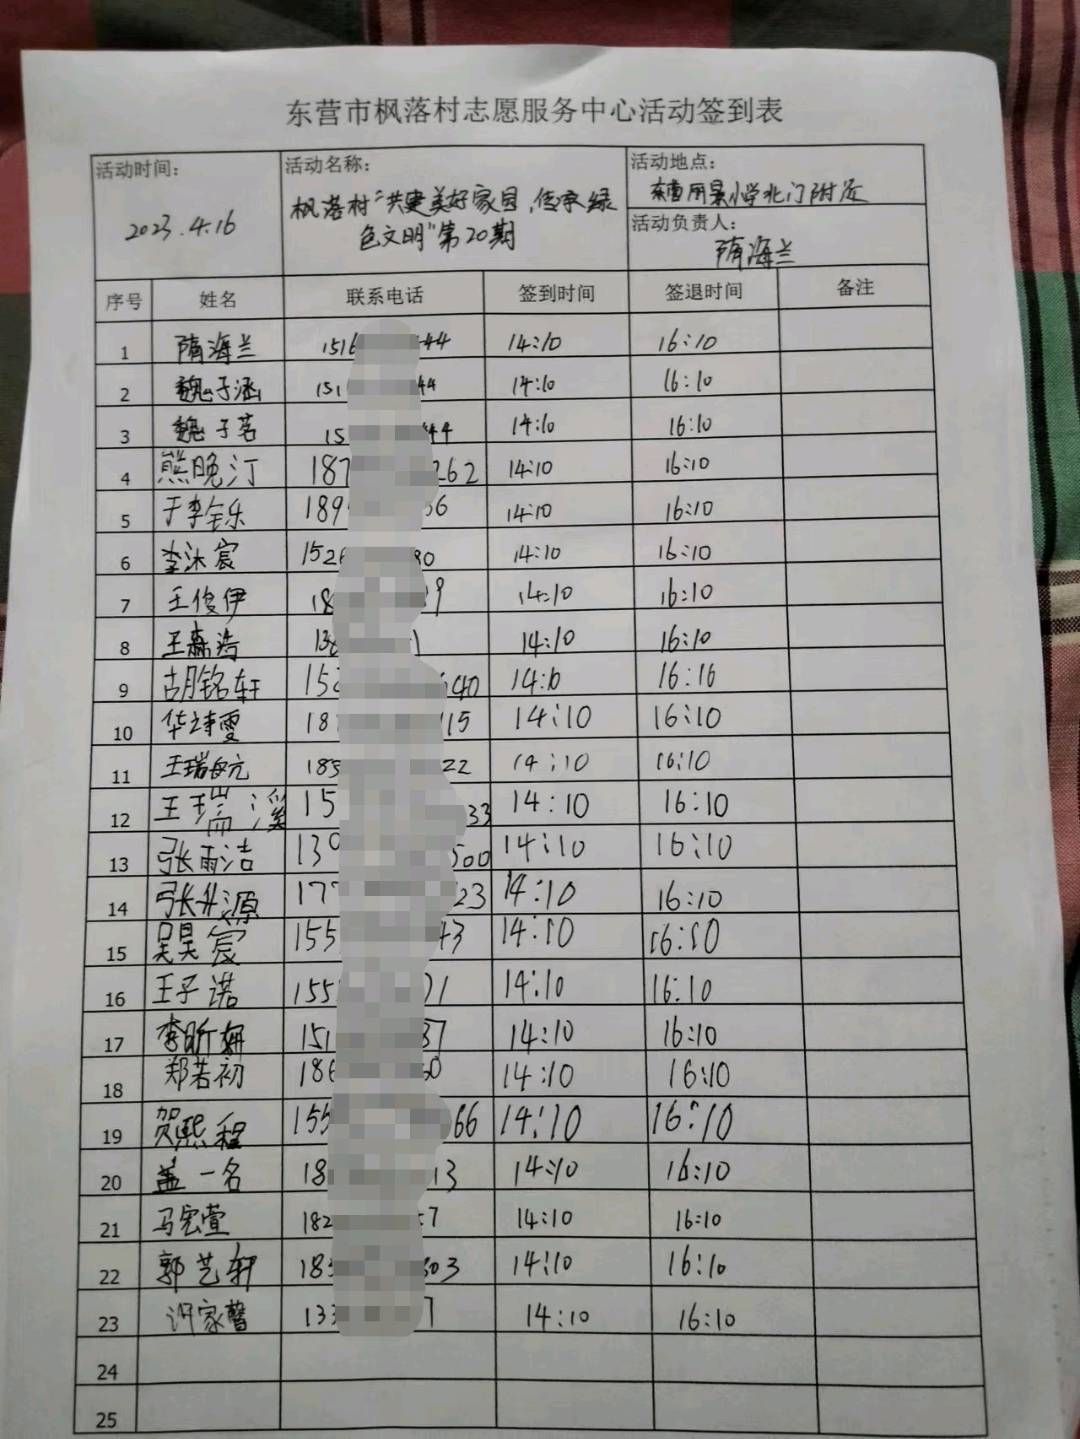 东营市枫落村志愿服务中心活动签到表
活动时间: 活动名称: 活动地点:
2023.4.16 枫落村“共建美好家园,传承绿 小学北门附近
色文明”第20期 活动负责人:
隋海兰
序号 姓名 联系电话 签到时间 签退时间 备注
1 隋海兰 1516 44 14:10 16:10
2 魏子涵 151 44 14:10 16:10
3 魏子茗 15 44 14:10 16:10
4 熊晚汀 187 262 14:10 16:10
5 于李钰乐 189 36 14:10 16:10
6 李沐宸 1526 80 14:10 16:10
7 王俊伊 18 9 14:10 16:10
8 王森浩 138 1 14:10 16:10
9 胡铭轩 152 640 14:10 16:16
10 华诗雯 18 115 14:10 16:10
11 王瑞 185 22 14:10 16:10
12 王瑞溪 15 33 14:10 16:10
13 张雨洁 139 500 14:10 16:10
14 张 源 177 23 14:10 16:10
15 吴昊宸 155 43 14:10 16:10
16 王子诺 155 01 14:10 16:10
17 李昕妍 151 87 14:10 16:10
18 郑若初 186 60 14:10 16:10
19 贺熙程 155 66 14:10 16:10
20 盖一名 18 13 14:10 16:10
21 马宏萱 182 57 14:10 16:10
22 郭艺轩 183 803 14:10 16:10
23 许家馨 133 7 14:10 16:10
24
25